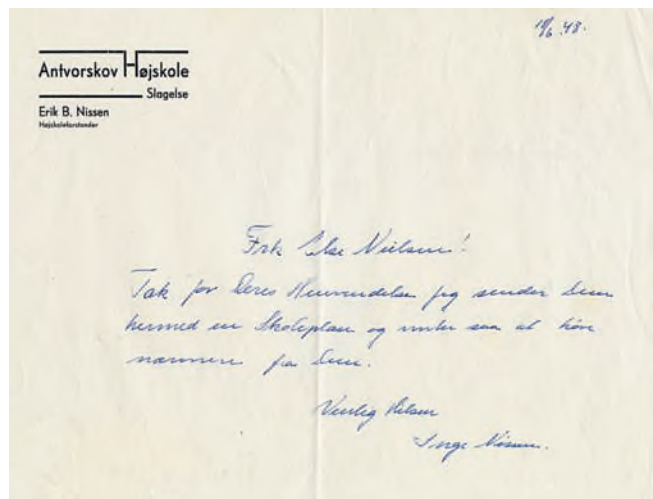 Antvorskov Højskole
Slagelse
Erik B. Nissen
Højskoleforstander
18/6 48.
Frk Else Nielsen!
Tak for Deres Henvendelse jeg sender Dem
hermed en Skoleplan og venter saa at höre
nærmere fra Dem.
Venlig Hilsen
Inge Nissen.